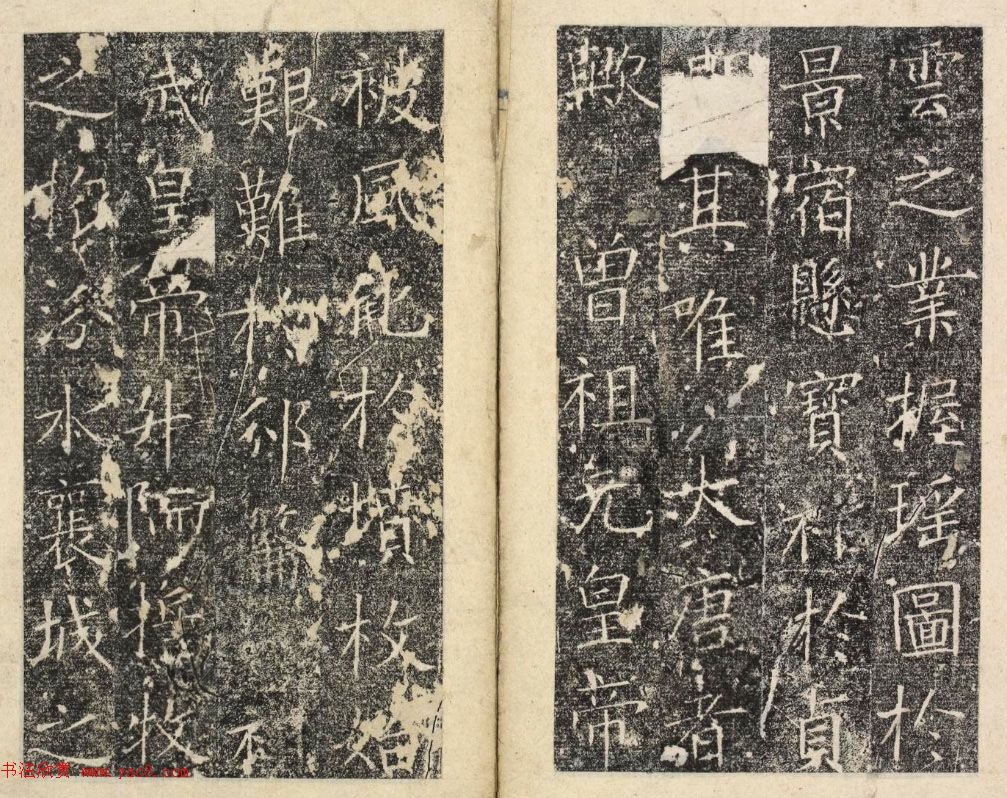 雲之業握瑶圖於
景宿懸寶祚於貞
其唯大唐者
歟曾祖元皇帝
被風能於墳枚
艱難於邠
武皇帝升陑牧
之水襄城之
书法欣赏 www.yac8.com